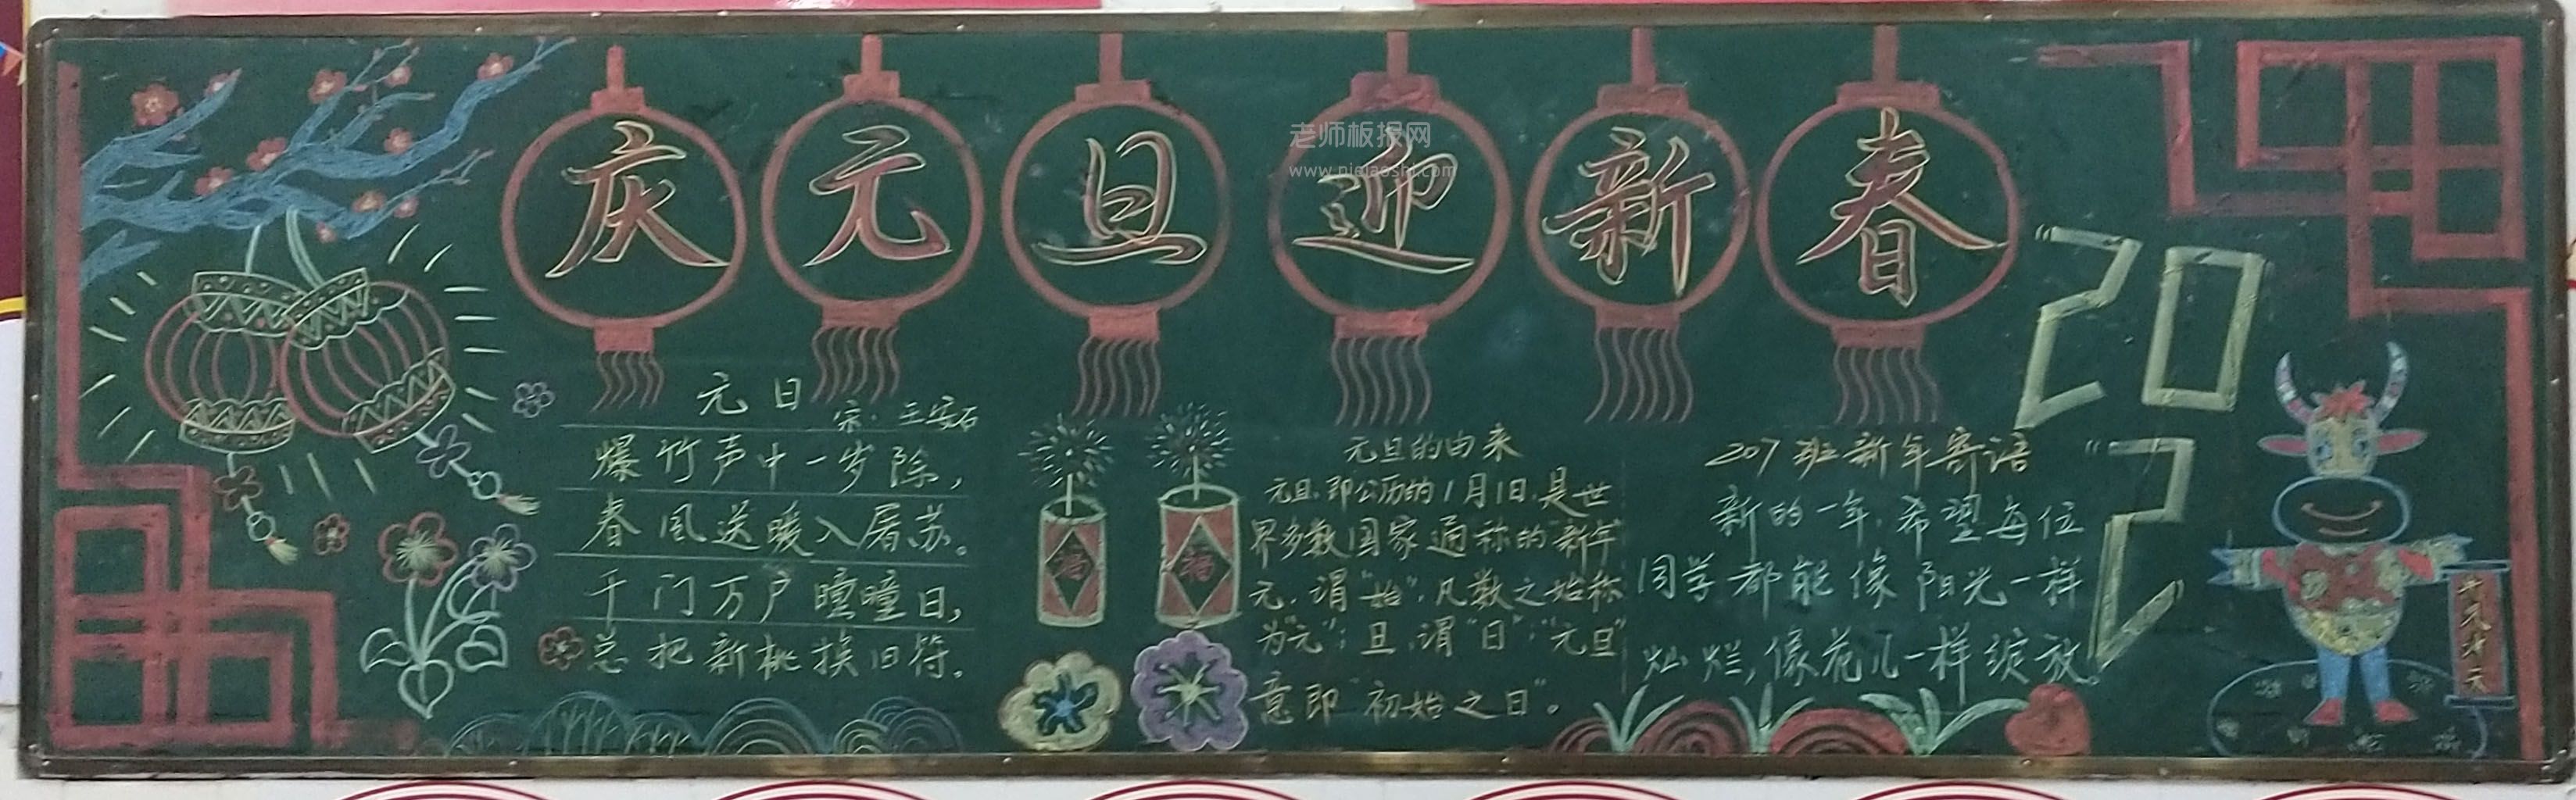 庆元旦迎新春
老师板报网
元日
宋·王安石
爆竹声中一岁除，
春风送暖入屠苏。
千门万户曈曈日，
总把新桃换旧符。
福
福
元旦的由来
元旦，即公历的1月1日，是世
界多数国家通称的“新年”
元，谓“始”，凡数之始称
为“元”；旦，谓“日”；“元旦”
意即“初始之日”。
207班新年寄语
新的一年，希望每位
同学都能像阳光一样
灿烂，像花儿一样绽放。
20
2